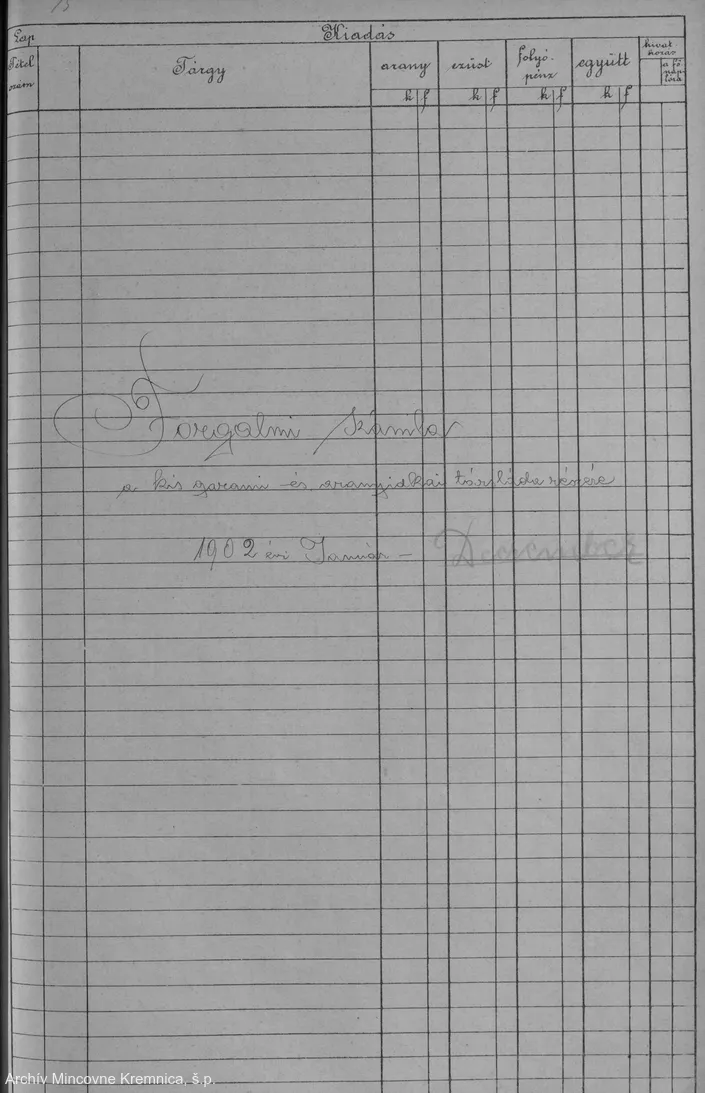 15
Lap
Kiadás
Tétel szám
Tárgy
arany
ezüst
folyó-
pénz
együtt
hivat
kozás
a fő
nap
lóra
k f k f k f k f
Forgalmi számla
a kis garami és aranyidkai társláda részére
1902 évi Január – December
Archív Mincovne Kremnica, š.p.